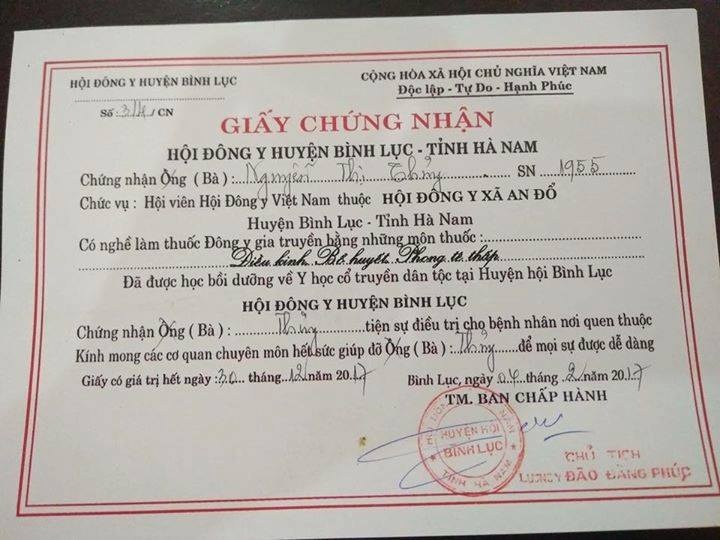 HỘI ĐÔNG Y HUYỆN BÌNH LỤC
CỘNG HÒA XÃ HỘI CHỦ NGHĨA VIỆT NAM
Độc lập - Tự Do - Hạnh Phúc
Số: 314/CN
GIẤY CHỨNG NHẬN
HỘI ĐÔNG Y HUYỆN BÌNH LỤC - TỈNH HÀ NAM
Chứng nhận Ông (Bà) : Nguyễn Thị Thủy SN 1955
Chức vụ : Hội viên Hội Đông y Việt Nam thuộc HỘI ĐÔNG Y XÃ AN ĐỔ
Huyện Bình Lục - Tỉnh Hà Nam
Có nghề làm thuốc Đông y gia truyền bằng những môn thuốc :
Điều kinh Bổ huyết Phong tê thấp
Đã được học bồi dưỡng về Y học cổ truyền dân tộc tại Huyện hội Bình Lục
HỘI ĐÔNG Y HUYỆN BÌNH LỤC
Chứng nhận Ông (Bà) : Thủy tiện sự điều trị cho bệnh nhân nơi quen thuộc
Kính mong các cơ quan chuyên môn hết sức giúp đỡ Ông (Bà) : Thủy để mọi sự được dễ dàng
Giấy có giá trị hết ngày 30 tháng 12 năm 2017
Bình Lục, ngày 04 tháng 2 năm 2017
TM. BAN CHẤP HÀNH
HUYỆN HỘI
BÌNH LỤC
TỈNH HÀ NAM
CHỦ TỊCH
ĐÀO ĐĂNG PHÚC